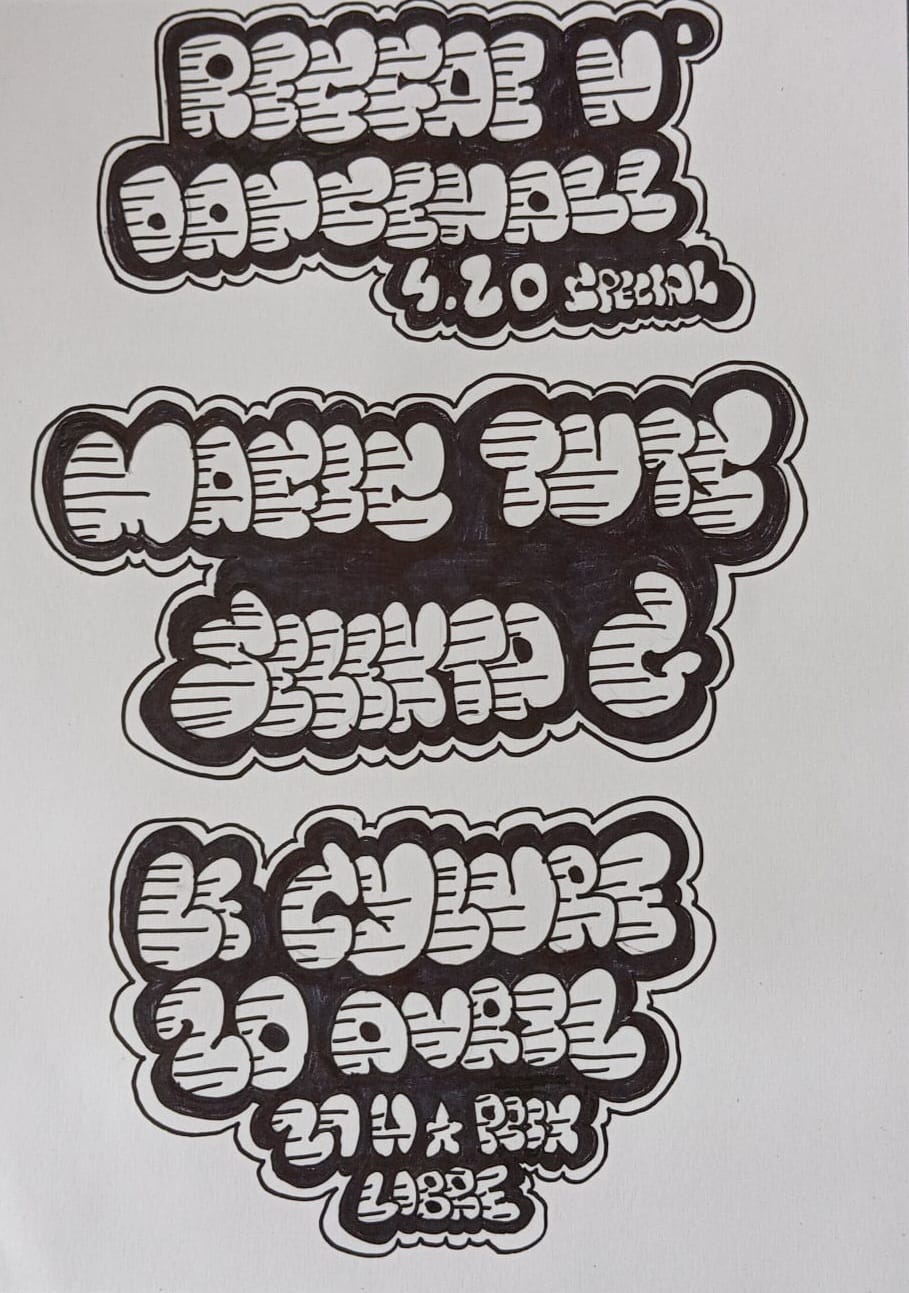 REGGAE N'
DANCEHALL
4.20 SPECIAL
MAGIC
SELEKTA
LE CYLURE
20 AVRIL
21H ★ PRIX
LIBRE